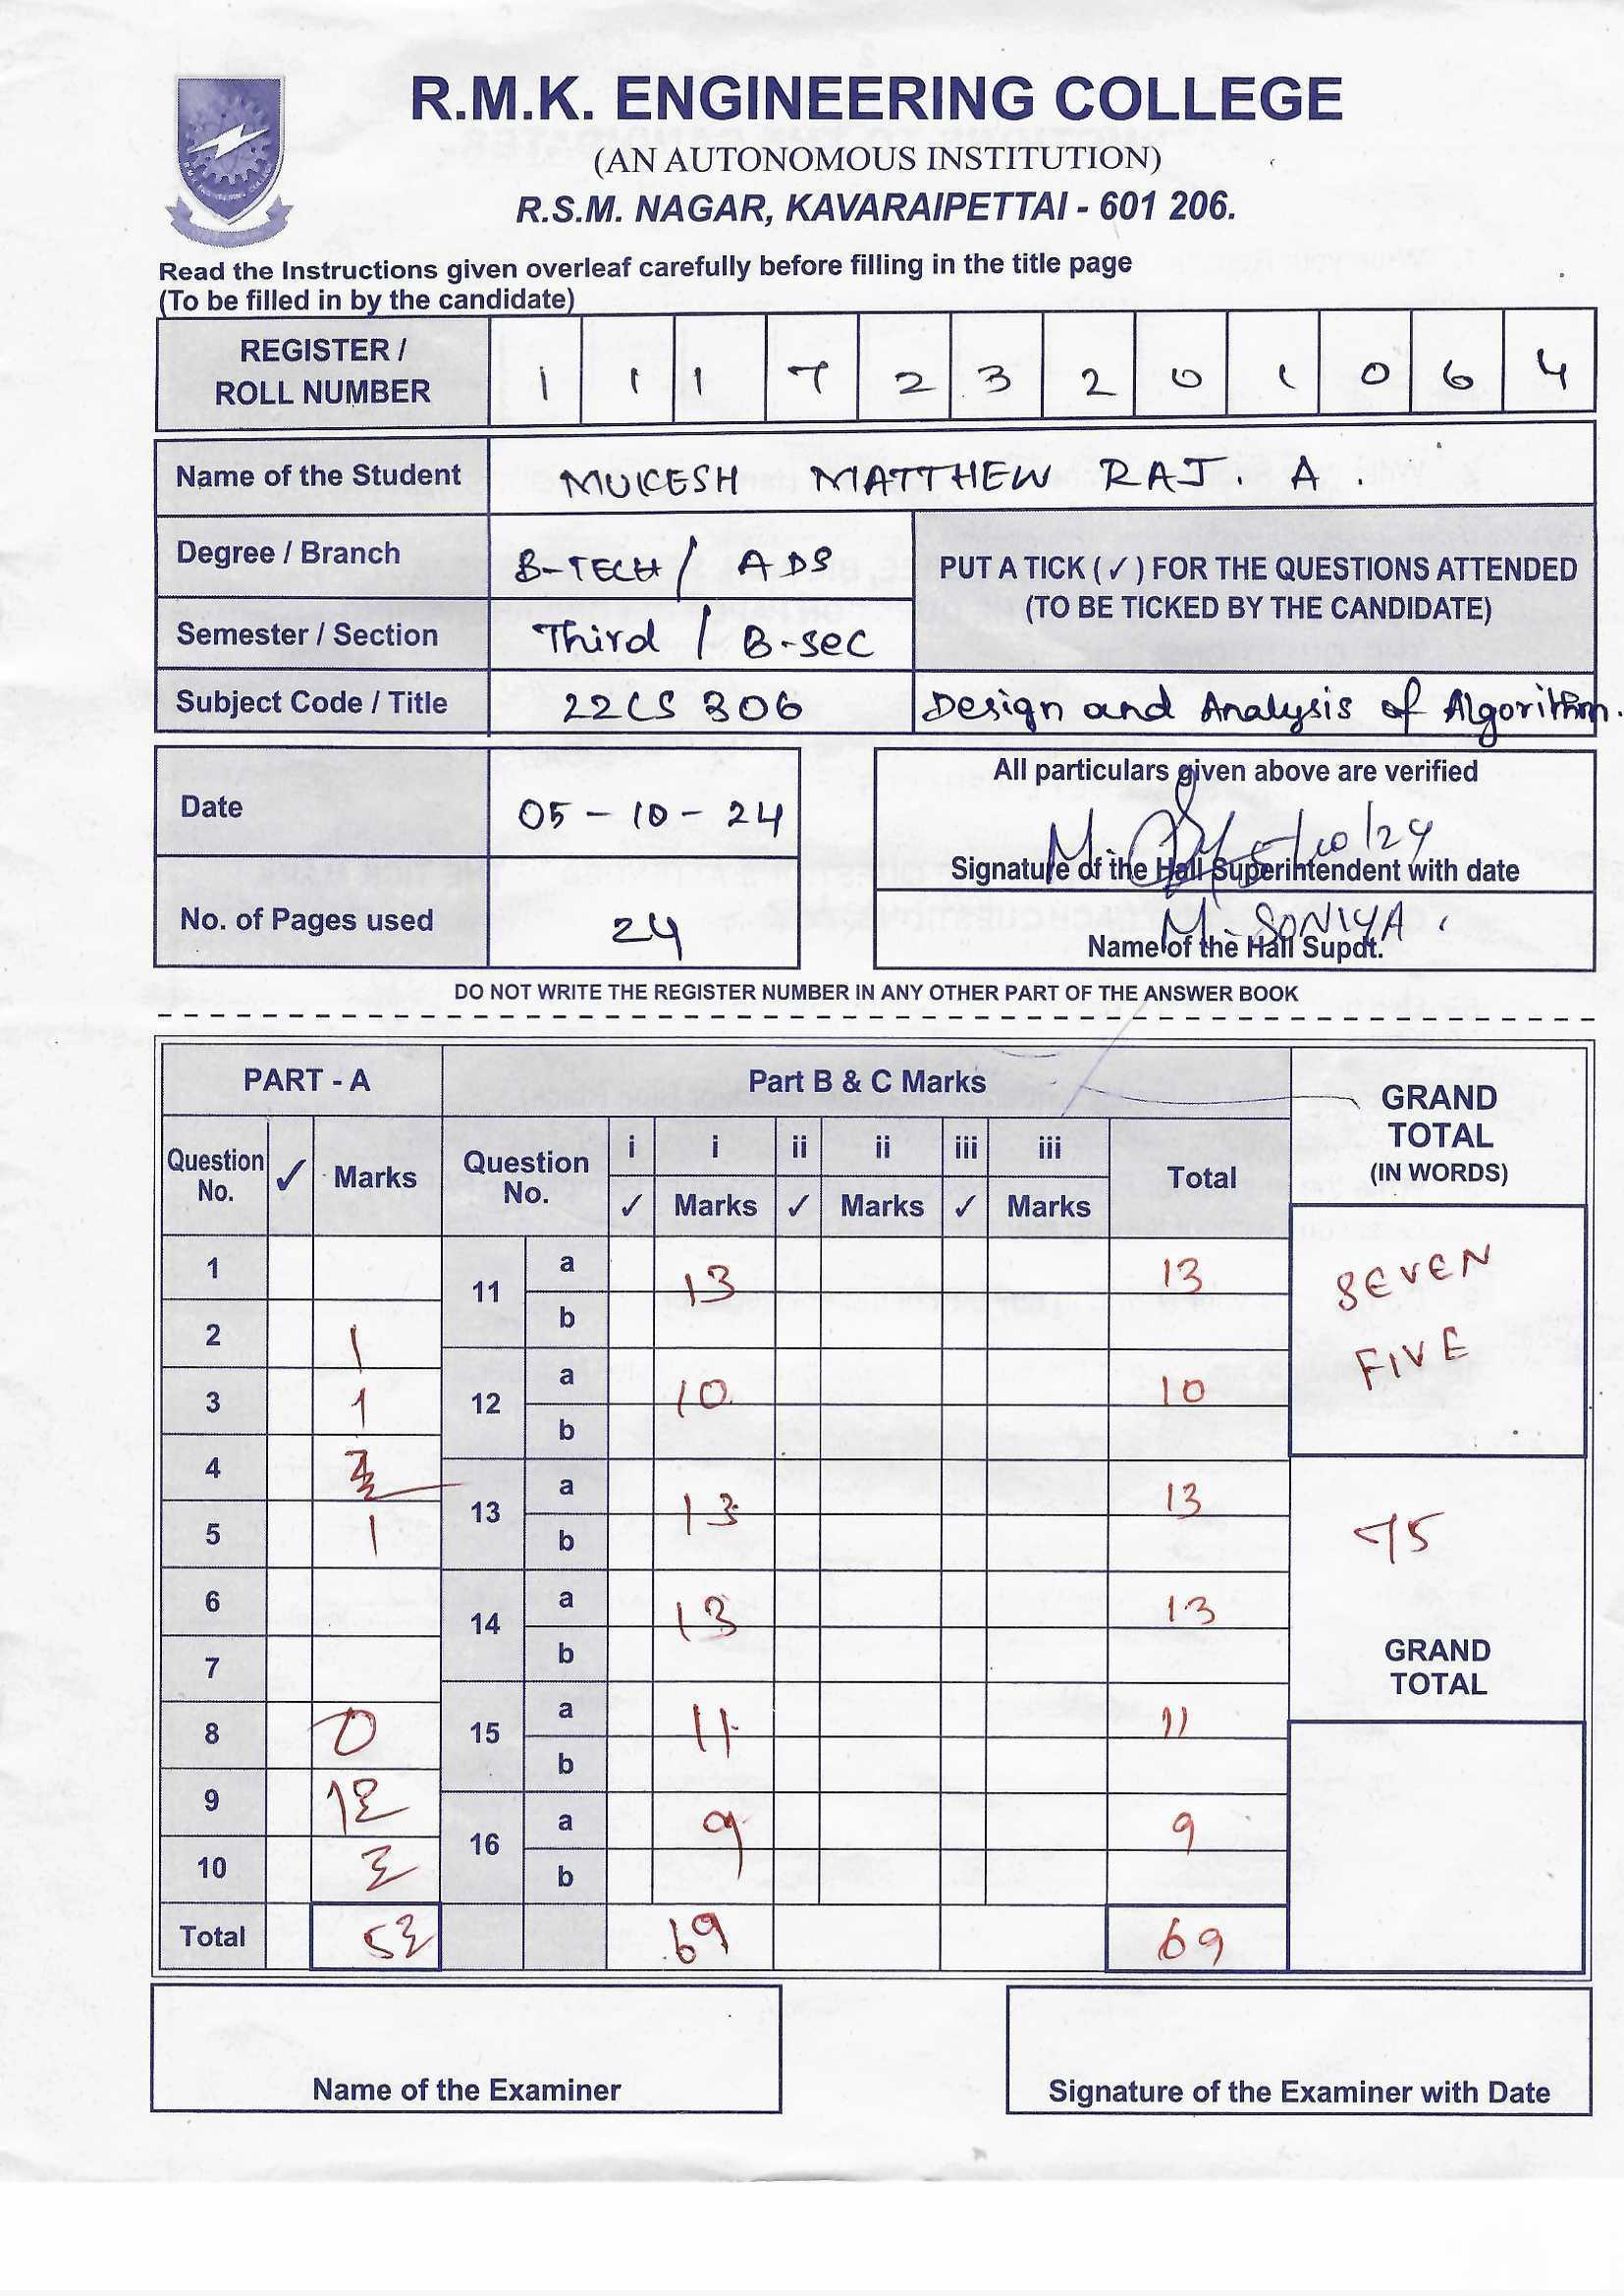 R.M.K. ENGINEERING COLLEGE
(AN AUTONOMOUS INSTITUTION)
R.S.M. NAGAR, KAVARAIPETTAI - 601 206.
Read the Instructions given overleaf carefully before filling in the title page
(To be filled in by the candidate)
REGISTER / ROLL NUMBER 1 1 1 7 2 3 2 0 1 0 6 4
Name of the Student MUKESH MATTHEW RAJ. A.
Degree / Branch B-TECH / ADS
PUT A TICK ( ✓ ) FOR THE QUESTIONS ATTENDED
(TO BE TICKED BY THE CANDIDATE)
Semester / Section Third / B-sec
Subject Code / Title 22CS306 Design and Analysis of Algorithm.
Date 05 - 10 - 24
All particulars given above are verified
5/10/24
Signature of the Hall Superintendent with date
No. of Pages used 24
M. SONIYA.
Name of the Hall Supdt.
DO NOT WRITE THE REGISTER NUMBER IN ANY OTHER PART OF THE ANSWER BOOK
PART - A Part B & C Marks GRAND TOTAL (IN WORDS)
Question No. ✓ Marks Question No. i i ii ii iii iii Total
✓ Marks ✓ Marks ✓ Marks
1 11 a 13 13
b
2 1
3 1 12 a 10 10
b
4
5 1 13 a 13 13
b
6 14 a 13 13
b
7
8 0 15 a 11 11
b
9
10 16 a 9 9
b
Total 69 69
SEVEN
FIVE
75
GRAND
TOTAL
Name of the Examiner
Signature of the Examiner with Date